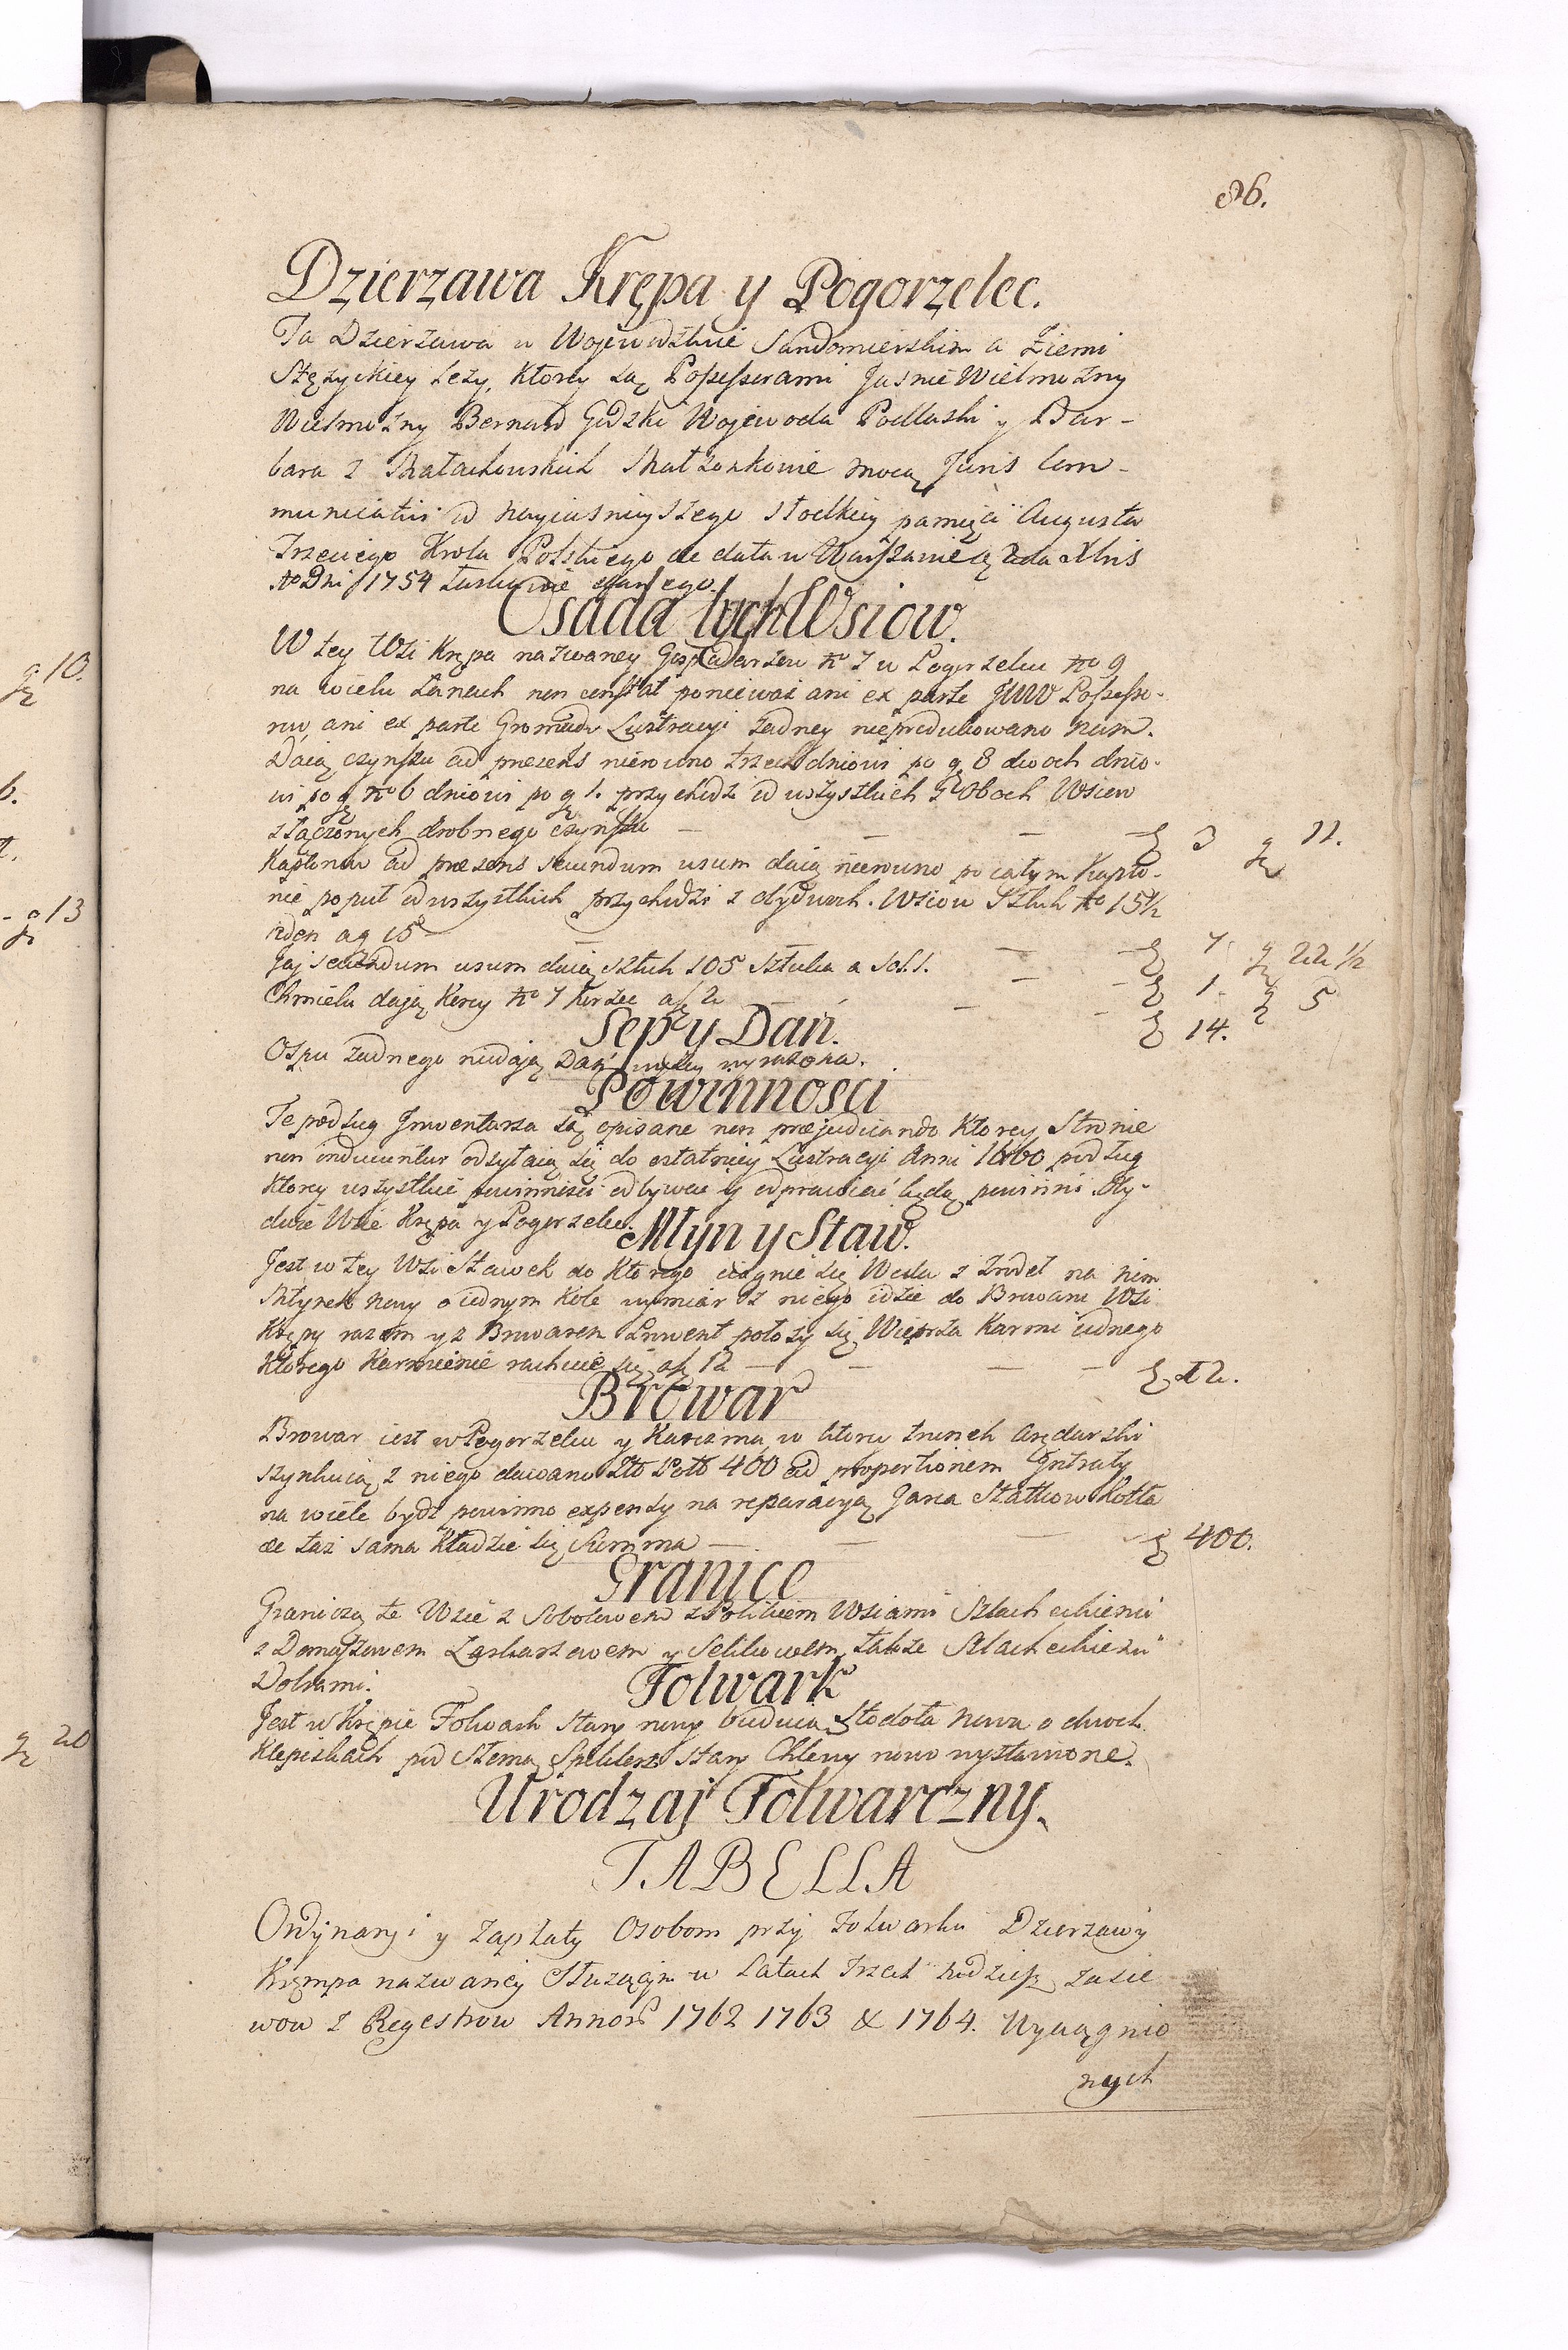 86.
Dzierzawa Krępa y Pogorzelec.
Ta Dzierzawa w Wojewodztwie Sandomierskim a Ziemi
Stęzyckiey Lezy, ktorey są Possessorami Jasnie Wielmozny
Wielmozny Bernard Gozski Wojewoda Podlaski y Bar-
bara z Małachowskich Małzonkowie mocą Juris Com-
municativi od Nayiasnieyszego słodkiey pamięci Augusta
Trzeciego Krola Polskiego de data w Warszawie
Dni 1754 Łaskawie
Osada tych Wsiow.
W tey Wsi Krępa nazwaney Gospodarzow No 7 w Pogorzelcu No 9
na wielu Łanach non constat poniewaz ani ex parte JWW Possesso-
row, ani ex parte Gromady Lustracyi zadney nieprodukowano nam.
Daią czynszu ad presens nierowno trzech dniowi po g 8 dwoch dnio-
wi po g No 6 dniowi po g 1. przychodzi od wszystkich z Oboch Wsiow
złączonych drobnego czynszu — — — 3 g 11.
Kapłonow ad presens secundum usum daią nierowno po całym Kapło-
nie poput od wszystkich przychodzi z obydwuch. Wsiow Sztuk No 15½
ieden a g 15 — — 7 g 22½
Jaj secundum usum daią sztuk 105 Sztuka a sol. 1. — — 1. g 5
Chmielu dają Korcy No 7 Korzec a 2 — — 14.
Sep y Dań.
Ospu zadnego niedają Dań wyzey wyrazona.
Powinnosci
Te podług Jnwentarza są opisane non prejudicando ktorey Stronie
non inducuntur odsyłaią się do ostatniey Lustracyi Anni 1660 podług
ktorey wszystkie powinnosci odbywac y odprawiać będą powinni Oby-
dwie Wsie Krępa y Pogorzelec.
Młyn y Staw.
Jest w tey Wsi Stawek do ktorego ciągnie się Woda z zrodeł na nim
Młynek nowy o iednym Kole wymiar z niego idzie do Browaru Wsi
Krępy razem y z Browarem Prowent połozy się, Wieprza Karmi iednego
ktorego Karmienie rachuie się a 12 — — — — 12.
Browar
Browar iest w Pogorzelcu y Karczma, w ktorey trunek Arędarski
szynkuią z niego dawano Zło Pols 400 ad proportionem Jntraty
na wiele bydź powinno expensy na reparacyą Garca Statkow Kotła
ze taz sama kładzie się Summa — — — 400.
Granice
Graniczą te Wsie z Sobolewem z Wsiami Szlacheckiemi
z Domaszewem y także Szlacheckiemi
Dobrami.
Folwark
Jest w Krępie Folwark Stary nowy buduią, Stodoła Nowa o dwoch
Klepiskach pod Słomą, Spichlerz Stary Chlewy nowo wystawione.
Urodzaj Folwarczny.
TABELLA
Ordynaryi y Zapłaty Osobom przy Folwarku Dzierzawy
Krempa nazwaney Słuzącym w Latach Trzech tudziesz zasie
wow z Regestrow Annor 1762 1763 & 1764. Wyciągnio
nych
g 10.
6.
t.
- g 13
g 20